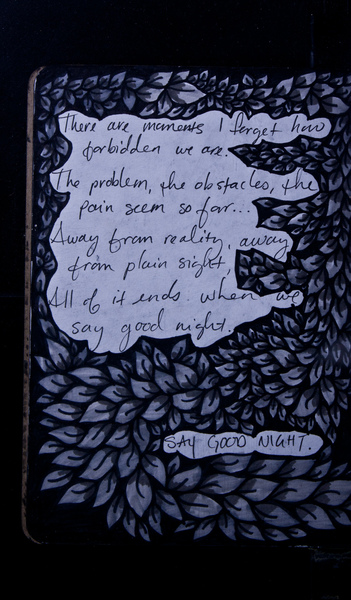 There are moments I forget how
forbidden we are.
The problem, the obstacles, the
pain seem so far...
Away from reality, away
from plain sight,
All of it ends when we
say good night.
SAY GOOD NIGHT.